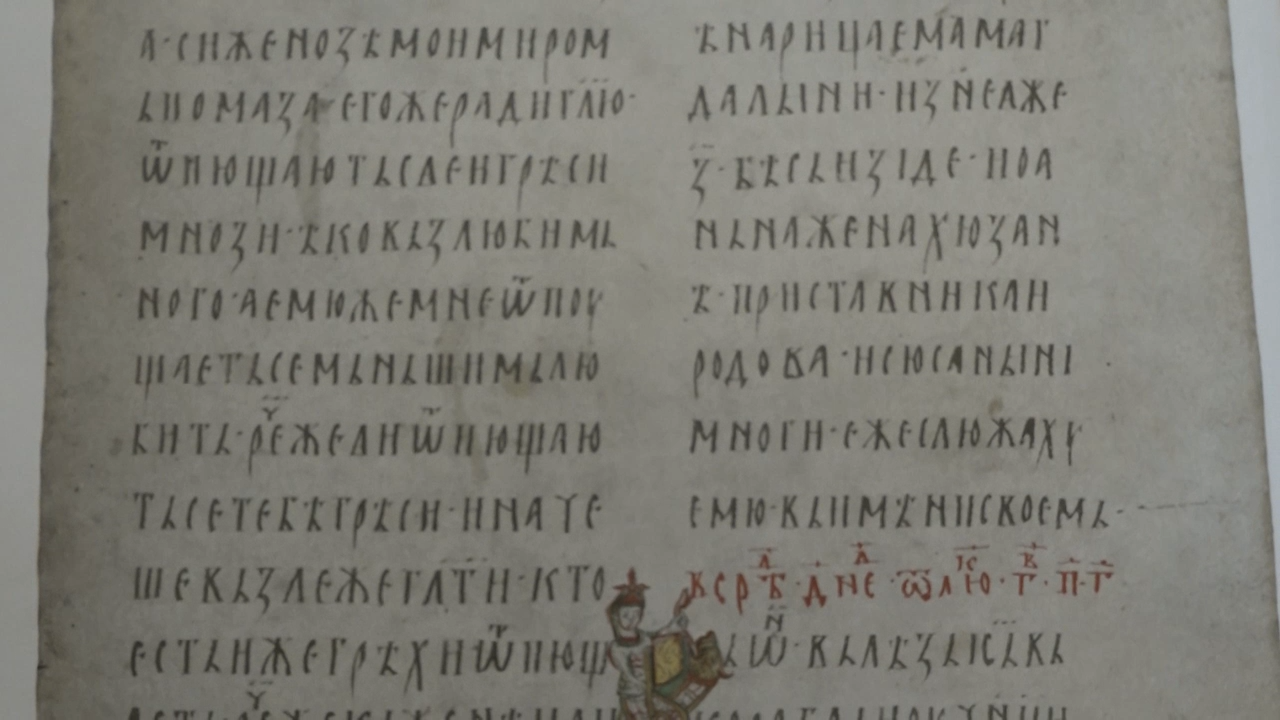 а·сиженозѣмоимиром
ьпомаза·егожерадигл҃ю·
ѿпющаютьсѧеигрѣси
мнози·ѣковьзлюбимь
ного·аемюжемнеѿпоу
щаетьсемьньшимьлю
бить·рⷱ҇ежелиѿпющаю
тьсетебѣгрѣси·иначе
шевьзлежегат҃и·кто
естьижегрѣхиѿпюща
ѣнарицаемамаг
далыни·изн҃еѧже
з҃·бѣсьизіде·иоа
ньнаженахюзан
ѣ·приставникаи
родова·исюсаньні
многи·ежеслюжахꙋ
емю·вьимѣнисвоемь·
всрѣд·д҃·дне·ѿлю·г҃·п҃·г҃